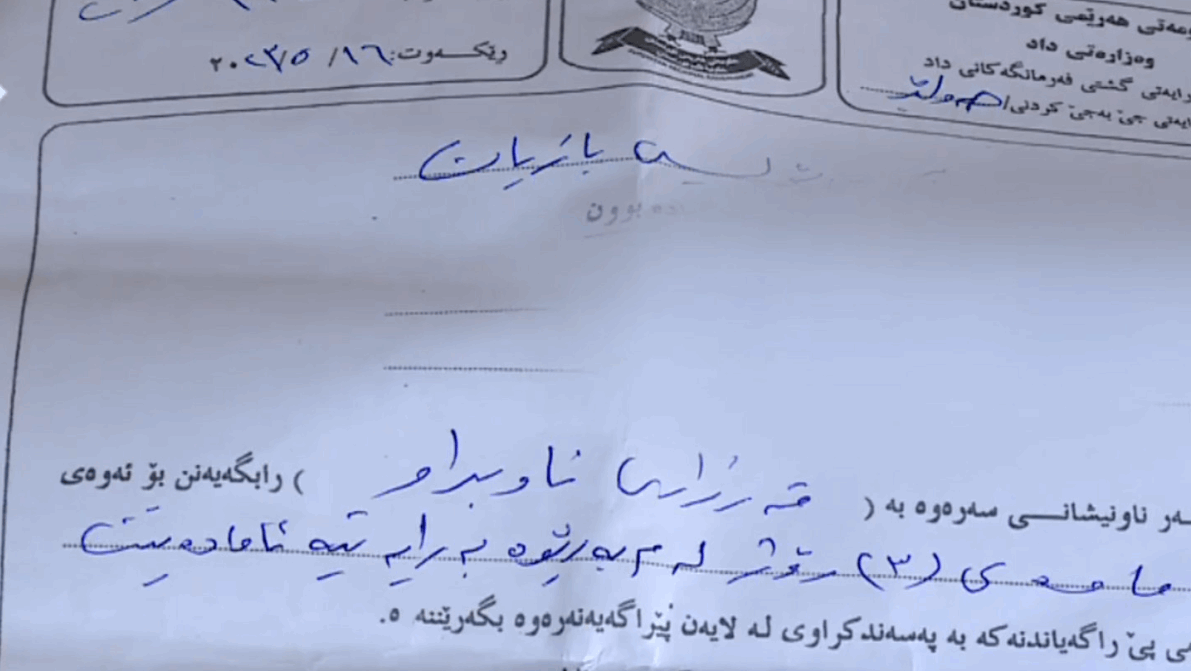 ومەتی هەرێمی کوردستان
وەزارەتی داد
رایەتی گشتی فەرمانگەکانی داد
ایەتی جێ بەجێ کردنی/هەولێر
ڕێکەوت: ١٦/ ٥/ ٢٠٢٣
بازیان
ە بوون
ەر ناونیشانی سەرەوە بە ( قەرزاری ناوبراو ) رابگەیەنن بۆ ئەوەی
ماوەی (٣) رۆژ لەم بەڕێوەبەرایەتیە ئامادەبێت
ی پێ راگەیاندنەکە بە پەسەندکراوی لە لایەن پێراگەیەنەرەوە بگەرێننە ٥.